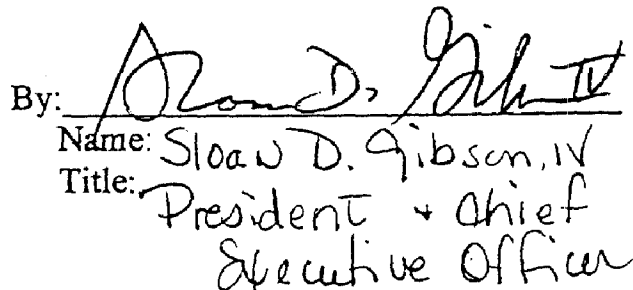 By: Sloan D. Gibson IV
Name: Sloan D. Gibson, IV
Title: President + Chief
Executive Officer